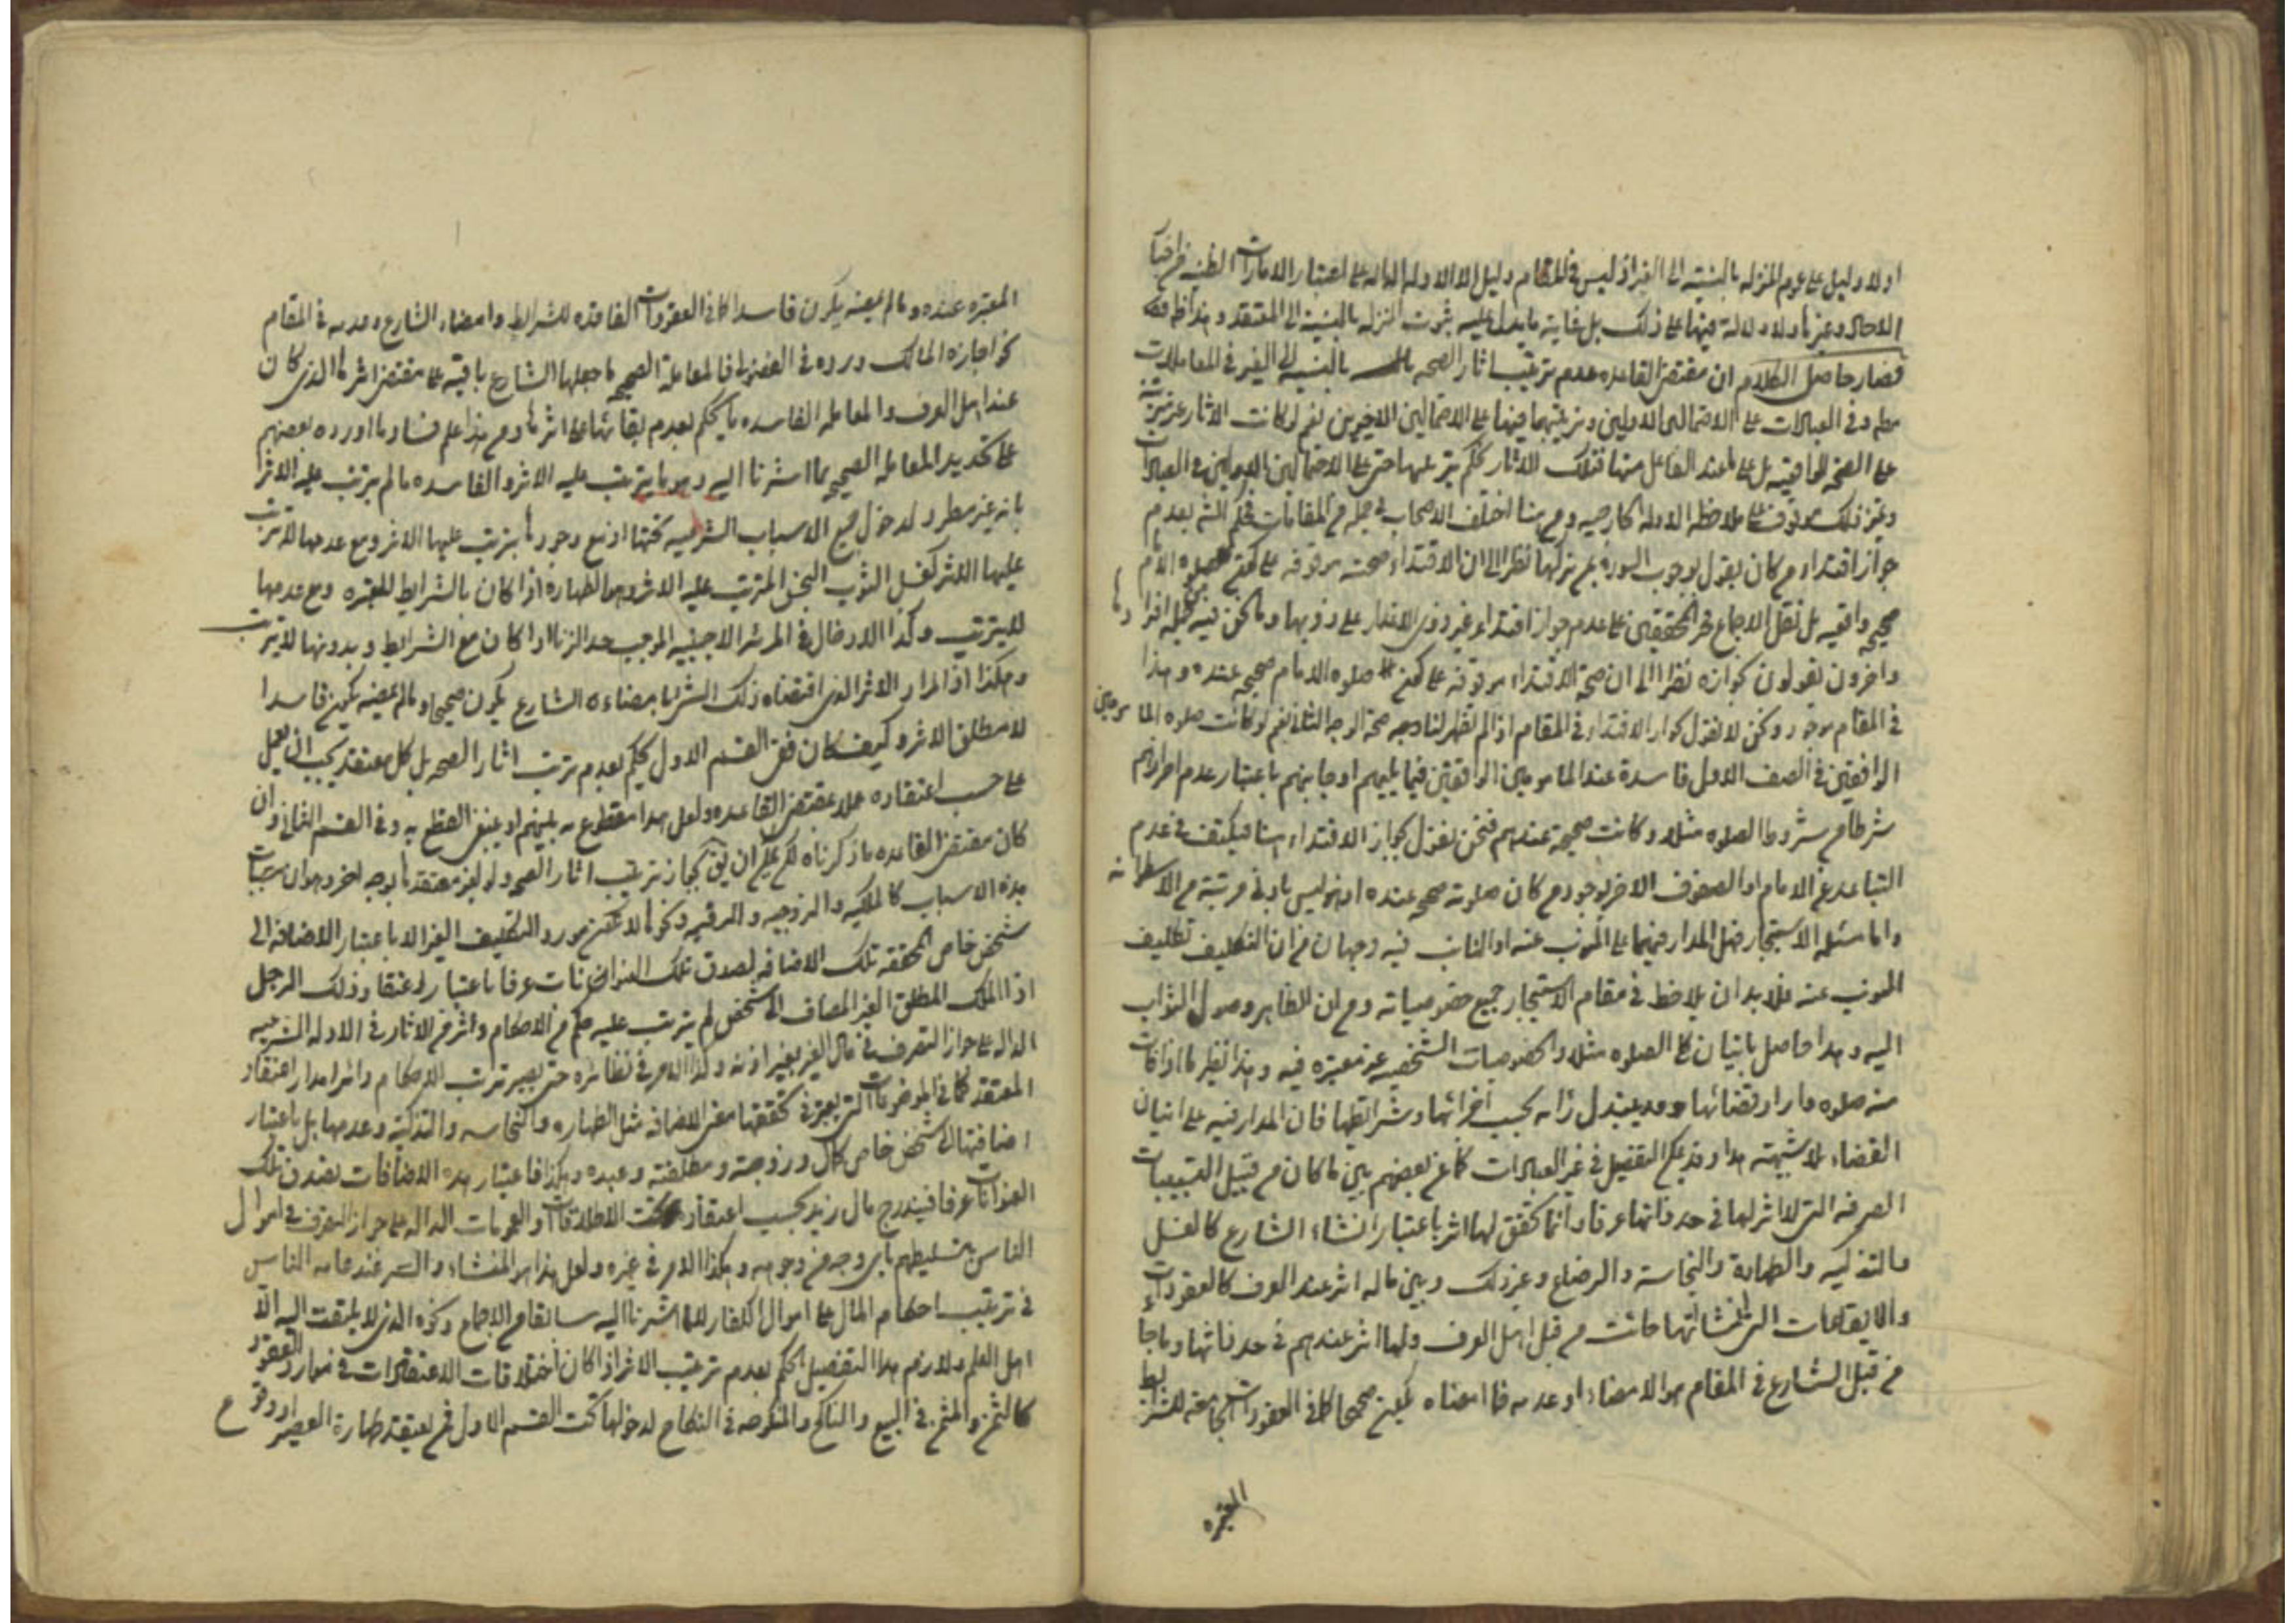 اولا دليل على عموم المنزله بالنسبه الى الغير اذ ليس فى المقام دليل الا الادله الداله على اعتبار الامارات الظنيه من اخبار
الاحاد وغيرها ولا دلالة فيها على ذلك بل غاية ما يدل عليه ثبوت المنزله بالنسبة الى المعتقد
فصار حاصل الكلام ان مقتضى القاعده عدم ترتيب اثار الصحه بالنسبه الى الغير فى المعاملات
وفى العبادات على الاحتمالين الاولين وترتيبها فيها على الاحتمالين الاخيرين نعم لو كانت الاثار مترتبة
على الصحه الواقعيه بل على ما عند الفاعل منها فتلك الاثار يحكم بترتبها حتى على الاحتمالين الاولين فى العبادات
وتميز ذلك موقوف على ملاحظة الادله الخارجيه ومن هنا اختلف الاصحاب فى جمله من المقامات فحكم بعدم
جواز اقتداء من كان يقول بوجوب السورة بمن تركها نظرا الى ان الاقتداء صحته موقوفه على كون صلوه الامام
صحيحه واقعيه بل نقل الاجماع المحققين على عدم جواز اقتداء
واخرون يقولون بجوازه نظرا الى ان صحة الاقتداء موقوفه على كون صلوه الامام صحيحه عنده وهذا
فى المقام موجود ونحن لا نقول بجواز الاقتداء فى المقام اذ لم يظهر لنا وجه صحة الوجه الثانى نعم لو كانت صلوه المامومين
الواقفين فى الصف الاول فاسدة عند المامومين الواقفين فيما يليهم او جانبهم باعتبار عدم احرازهم
شرطا من شروط الصلوه مثلا وكانت صحيحة عندهم فنحن نقول بجواز الاقتداء هنا فيكتفى فى عدم
التباعد عن الامام او الصفوف الاخر بوجود من كان صلوته صحيحه عنده اذ هو ليس بادنى مرتبة من الاسطوانه
واما مسئله الاستيجار فهل المدار فيهما على المنوب عنه او النائب فيه وجهان من ان التكليف تكليف
المنوب عنه فلا بد ان يلاحظ فى مقام الاستيجار جميع خصوصياته ومن ان الظاهر وصول الثواب
اليه وهذا حاصل باتيان الصلوه مثلا والخصوصيات الشخصيه غير معتبره فيه وهذا نظير ما اذا فات
منه صلوه واراد قضائها وقد تبدل رايه بحسب اجزائها وشرائطها فان المدار فيه على اتيان
القضاء بلا شبهته هذا وقد يحكم التفصيل فى غير العبادات كما عن بعضهم بين ما كان من قبيل السببيات
الصرفه التى لا اثر لها فى حد ذاتها عرفا وانما تحقق لها اثر باعتبار انشاء الشارع كالغسل
والتذكيه والطهارة والنجاسة والرضاع وغير ذلك وبين ما له اثر عند العرف كالعقود
والايقاعات التى انشائها جائت من قبل اهل العرف ولها اثر عندهم فى حد ذاتها وما جاء
من قبل الشارع فى المقام هو الامضاء او عدمه فما امضاه يكون صحيحا كما فى العقود الجامعه للشرايط
المعتبره
المعتبره عنده وما لم يمضه يكون فاسدا كما فى العقود الفاقده للشرايط وامضاء الشارع وعدمه فى المقام
نحو اجازه المالك ورده فى الفضولى فالمعاملة الصحيحه ما جعلها الشارع باقية على مقتضى اثرها الذى كان
عند اهل العرف والمعامله الفاسده ما يحكم بعدم بقائها على اثرها ومن هذا علم فساد ما اورده بعضهم
على تحديد المعامله الصحيحه بما اشرنا اليه وهو ما يترتب عليه الاثر والفاسده ما لم يترتب عليه الاثر
بانه غير مطرد لدخول جميع الاسباب الشرعيه تحتها اذ مع وجودها يترتب عليها الاثر ومع عدمها لا يترتب
عليها الاثر كغسل الثوب النجس المترتب عليه الاثر وهو الطهارة اذا كان بالشرايط المعتبره ومع عدمها
لا يترتب وكذا الادخال فى المرئه الاجنبيه الموجب حد الزنا اذا كان مع الشرايط وبدونها لا يترتب
وهكذا اذ المراد الاثر الذى اقتضاه ذلك الشئ بامضاءه الشارع يكون صحيحا وما لم يمضه يكون فاسدا
لا مطلق الاثر وكيف كان ففى القسم الاول يحكم بعدم ترتيب اثار الصحه بل كل معتقد يجب ان يعمل
على حسب اعتقاده عملا بمقتضى القاعده ولعل هذا مقطوع به بينهم او ينبغى القطع به وفى القسم الثانى وان
كان مقتضى القاعده ما ذكرناه لكن يمكن ان يق بجواز ترتيب اثار الصحه ولو لغير معتقدها بوجه اخر وهو ان مسببات
هذه الاسباب كالملكيه والزوجيه والرقيه ونحوها لا تكون مورد التكليف الغير الا باعتبار الاضافه الى
شخص خاص المحققه تلك الاضافه لصدق تلك العنوانات عرفا باعتبار اعتقاد ذلك الرجل
اذ الملك المطلق الغير المضاف الى شخص لم يترتب عليه حكم من الاحكام واثر من الاثار فى الادله الشرعيه
الداله على جواز التصرف فى مال الغير بغير اذنه وكذا الامر فى نظائره حتى يصير ترتيب الاحكام والاثر مدار اعتقاد
المعتقد كما فى الموضوعات التى يعتبر فى تحققها معنى الاضافه مثل الطهاره والنجاسه والتذكية وعدمها بل باعتبار
اضافتها الى شخص خاص كماله وزوجته ومطلقته وعبده وهكذا فاعتبار هذه الاضافات بصدق تلك
العنوانات عرفا فيندرج مال زيد بحسب اعتقاده تحت الاطلاقات والعمومات الداله على جواز التصرف فى اموال
الناس بتسليطهم باى وجه من وجوهه وهكذا الامر فى غيره ولعل هذا هو المنشاء والسر عند عامه الناس
فى ترتيب احكام المال على اموال الكفار لا ما اشرنا اليه سابقا من الاجماع ونحوه الذى لا يلتفت اليه الا
اهل العلم ولازم هذا التفصيل الحكم بعدم ترتيب الاثر اذا كان اختلافات الاعتقادات فى موارد العقود
كالثمن والمثمن فى البيع والناكح والمنكوحه فى النكاح لدخولها تحت القسم الاول فمن يعتقد طهارة العصير او وقوع